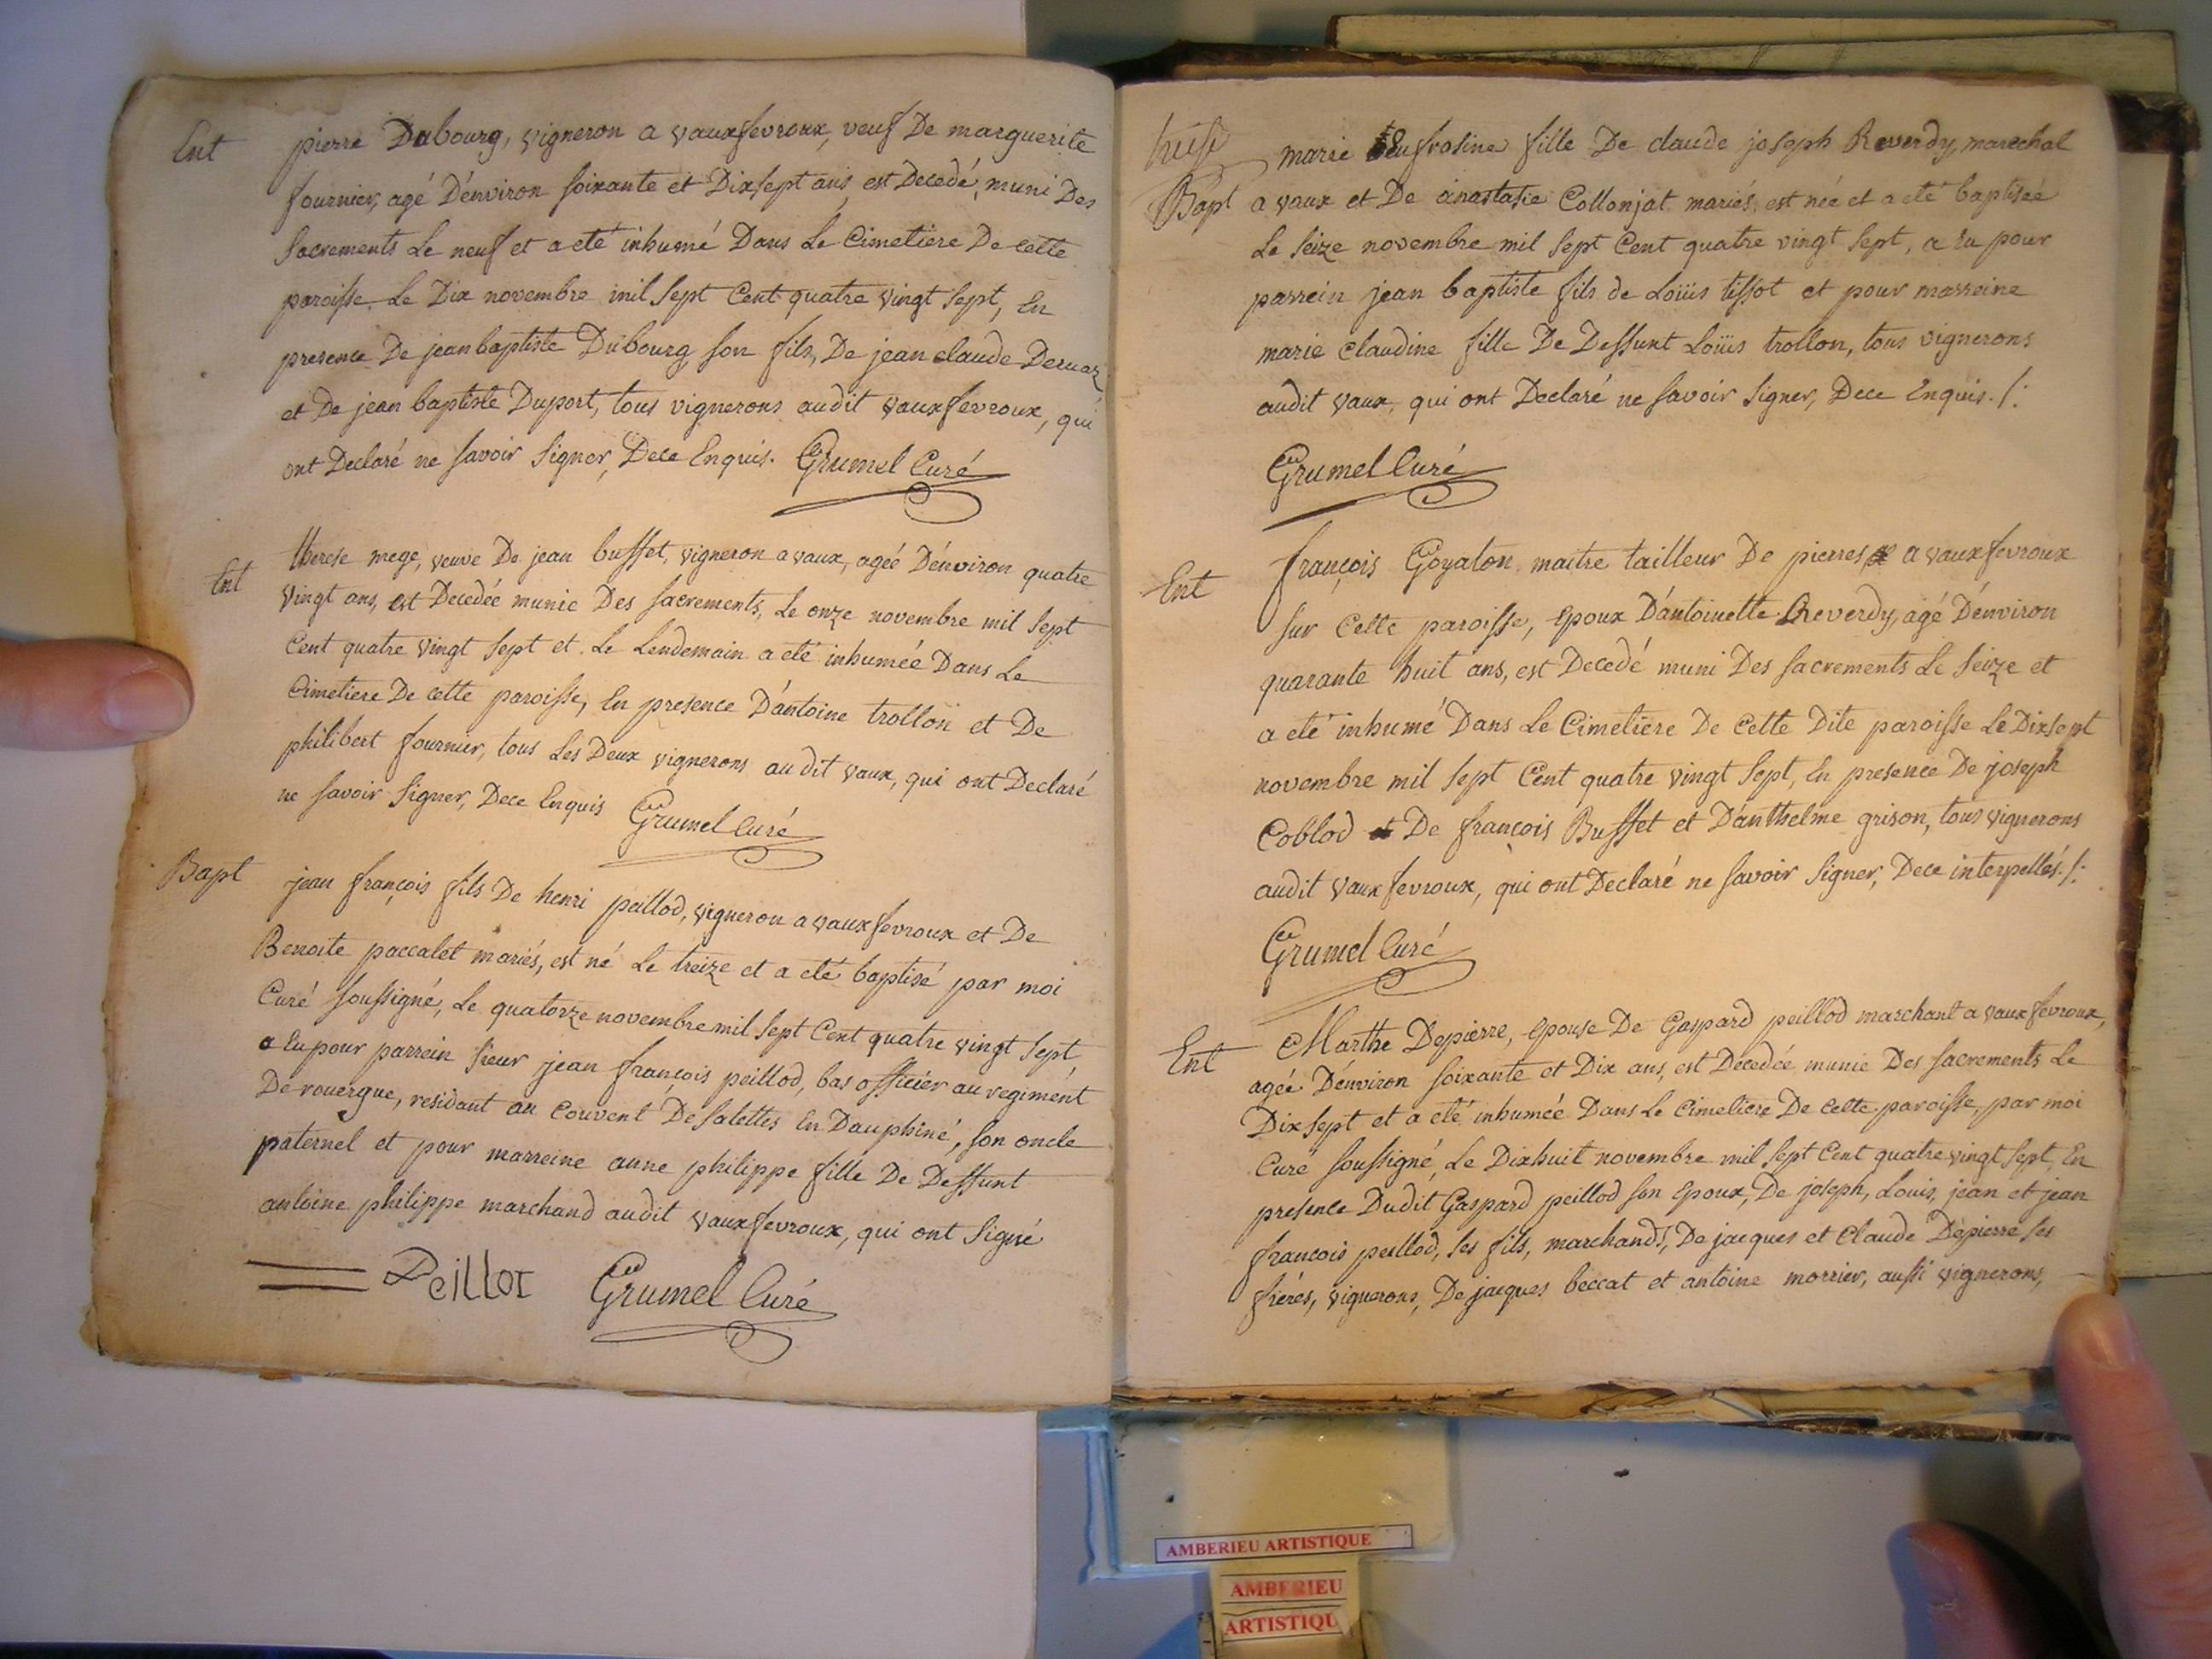 Ent pierre Dubourg, vigneron a vauxfevroux, veuf De marguerite
fournier, agé D'énviron soixante et Dixsept ans, est Decedé, muni Des
sacrements Le neuf et a eté inhumé Dans Le Cimetiere De cette
paroisse Le Dix novembre mil sept Cent quatre vingt sept, En
presence De jean baptiste Dubourg son fils, De jean claude Deruaz
et De jean baptiste Duport, tous vignerons audit vauxfevroux, qui
ont Declaré ne savoir signer, Dece Enquis. Grumel Curé
Ent therese mege, veuve De jean buffet, vigneron a vaux, agée D'énviron quatre
vingt ans, est Decedée munie Des sacrements, Le onze novembre mil sept
Cent quatre vingt sept et Le Lendemain a eté inhumée Dans Le
Cimetiere De cette paroisse, En presence D'antoine trollon et De
philibert fournier, tous Les Deux vignerons au dit vaux, qui ont Declaré
ne savoir signer, Dece Enquis Grumel curé
Bapt jean françois fils De henri peillod, vigneron a vauxfevroux et De
Benoite paccalet mariés, est né Le treize et a eté baptisé par moi
Curé soussigné, Le quatorze novembre mil sept Cent quatre vingt sept
a Eu pour parrein sieur jean françois peillod, bas officier au regiment
De rouergue, residant au Couvent De salettes En Dauphiné, son oncle
paternel et pour marreine anne philippe fille De Deffunt
antoine philippe marchand audit vauxfevroux, qui ont signé
Peillot Grumel Curé
marie eufrosine fille De claude joseph Reverdy, marechal
Bapt a vaux et De anastasie Collonjat mariés, est née et a eté baptisée
Le seize novembre mil sept Cent quatre vingt sept, a Eu pour
parrein jean baptiste fils de Loüis tissot et pour marreine
marie claudine fille De Deffunt Loüis trollon, tous vignerons
audit vaux, qui ont Declaré ne savoir signer, Dece Enquis. /:
Grumel Curé
Ent françois Goyaton maitre tailleur De pierres a vauxfevroux
sur Cette paroisse, Epoux D'antoinette Reverdy, agé D'énviron
quarante huit ans, est Decedé muni Des sacrements Le seize et
a eté inhumé Dans Le Cimetiere De Cette Dite paroisse Le Dixsept
novembre mil sept Cent quatre vingt sept, En presence De joseph
Coblod De françois Buffet et D'anthelme grison, tous vignerons
audit vauxfevroux, qui ont Declaré ne savoir signer, Dece interpellés. /:
Grumel Curé
Ent Marthe Depierre, Epouse De Gaspard peillod marchant a vauxfevroux,
agée D'énviron soixante et Dix ans, est Decedée munie Des sacrements Le
Dixsept et a eté inhumée Dans Le Cimetiere De Cette paroisse, par moi
Curé soussigné, Le Dixhuit novembre mil sept Cent quatre vingt sept, En
presence Dudit Gaspard peillod son Epoux, De joseph, Louis, jean et jean
françois peillod, ses fils, marchands, De jacques et Claude Depierre ses
freres, vignerons, De jacques beccat et antoine morrier, aussi vignerons,
AMBERIEU ARTISTIQUE
AMBERIEU
ARTISTIQU